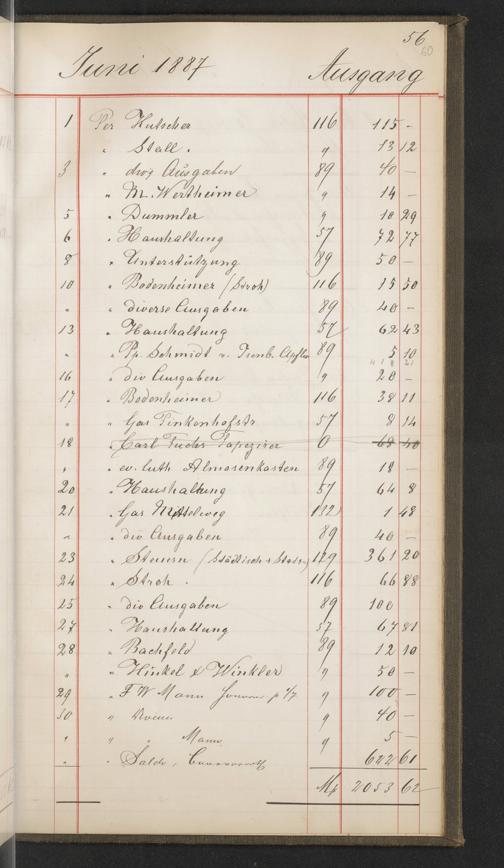 56
60
Juni 1887 Ausgang
1 Per Kutscher 116 115 –
" Stall. " 13 12
3 " divg Ausgaben 89 40 –
" M. Wertheimer " 14 –
5 " Dummler " 10 29
6 " Haushaltung 57 72 77
8 " Unterstützung 89 50 –
10 " Bodenheimer (Stroh) 116 15 50
" " diverse Ausgaben 89 40 –
13 " Haushaltung 57 62 43
" " Pp. Schmidt 89 5 10
16 " div Ausgaben " 20 –
17 " Bodenheimer 116 38 11
" " Gas Finkenhofstr 57 8 14
18 " Carl Fuchs Tapezier 0 68 40
" " ev. luth Almosenkasten 89 18 –
20 " Haushaltung 57 64 8
21 " Gas Mittelweg 112 1 48
" " div Ausgaben 89 40 –
23 " Steuern (Städtische 129 361 20
24 " Stroh. 116 66 88
25 " div Ausgaben 89 100
27 " Haushaltung 57 67 81
28 " Bachfeld 89 12 10
" " Hinkel & Winkler " 50 –
29 " F W Mann " 100 –
30 " " 40 –
" " " Mann " 5 –
" " Saldo, 622 61
Mk 2053 62